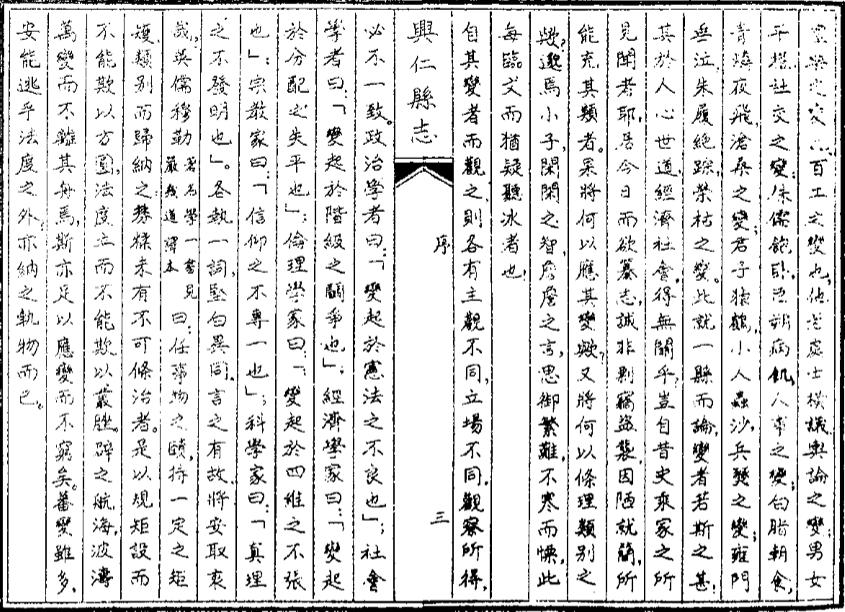 百工之變也他若處士橫議輿論之變男女
平權社交之變侏儒飽臥臣朔病飢人事之變白脂朝食
青燐夜飛滄桑之變君子猿鶴小人蟲沙兵燹之變雍門
垂泣朱履絕踪榮枯之變此就一縣而論變者若斯之甚
其於人心世道經濟社會得無關乎豈自昔史乘家之所
見聞者耶居今日而欲纂志誠非剽竊盜襲因陋就簡所
能充其類者果將何以應其變歟又將何以條理類別之
歟邈焉小子閑閑之智詹詹之言思御繁難不寒而慄此
每臨文而猶疑聽冰者也
自其變者而觀之則各有主觀不同立場不同觀察所得
興仁縣志
序
三
必不一致政治學者曰「變起於憲法之不良也」社會
學者曰「變起於階級之鬪爭也」經濟學家曰「變起
於分配之失平也」倫理學家曰「變起於四維之不張
也」宗教家曰「信仰之不專一也」科學家曰「真理
之不發明也」各執一詞堅白異同言之有故將安取衷
哉英儒穆勒著名學一書見嚴幾道譯本曰任事物之賾持一定之矩
矱類別而歸納之棼糅未有不可條治者是以規矩設而
不能欺以方圓法度立而不能欺以叢脞譬之航海波濤
萬變而不離其舟焉斯亦足以應變而不窮矣蕃變雖多
安能逃乎法度之外亦納之軌物而已。